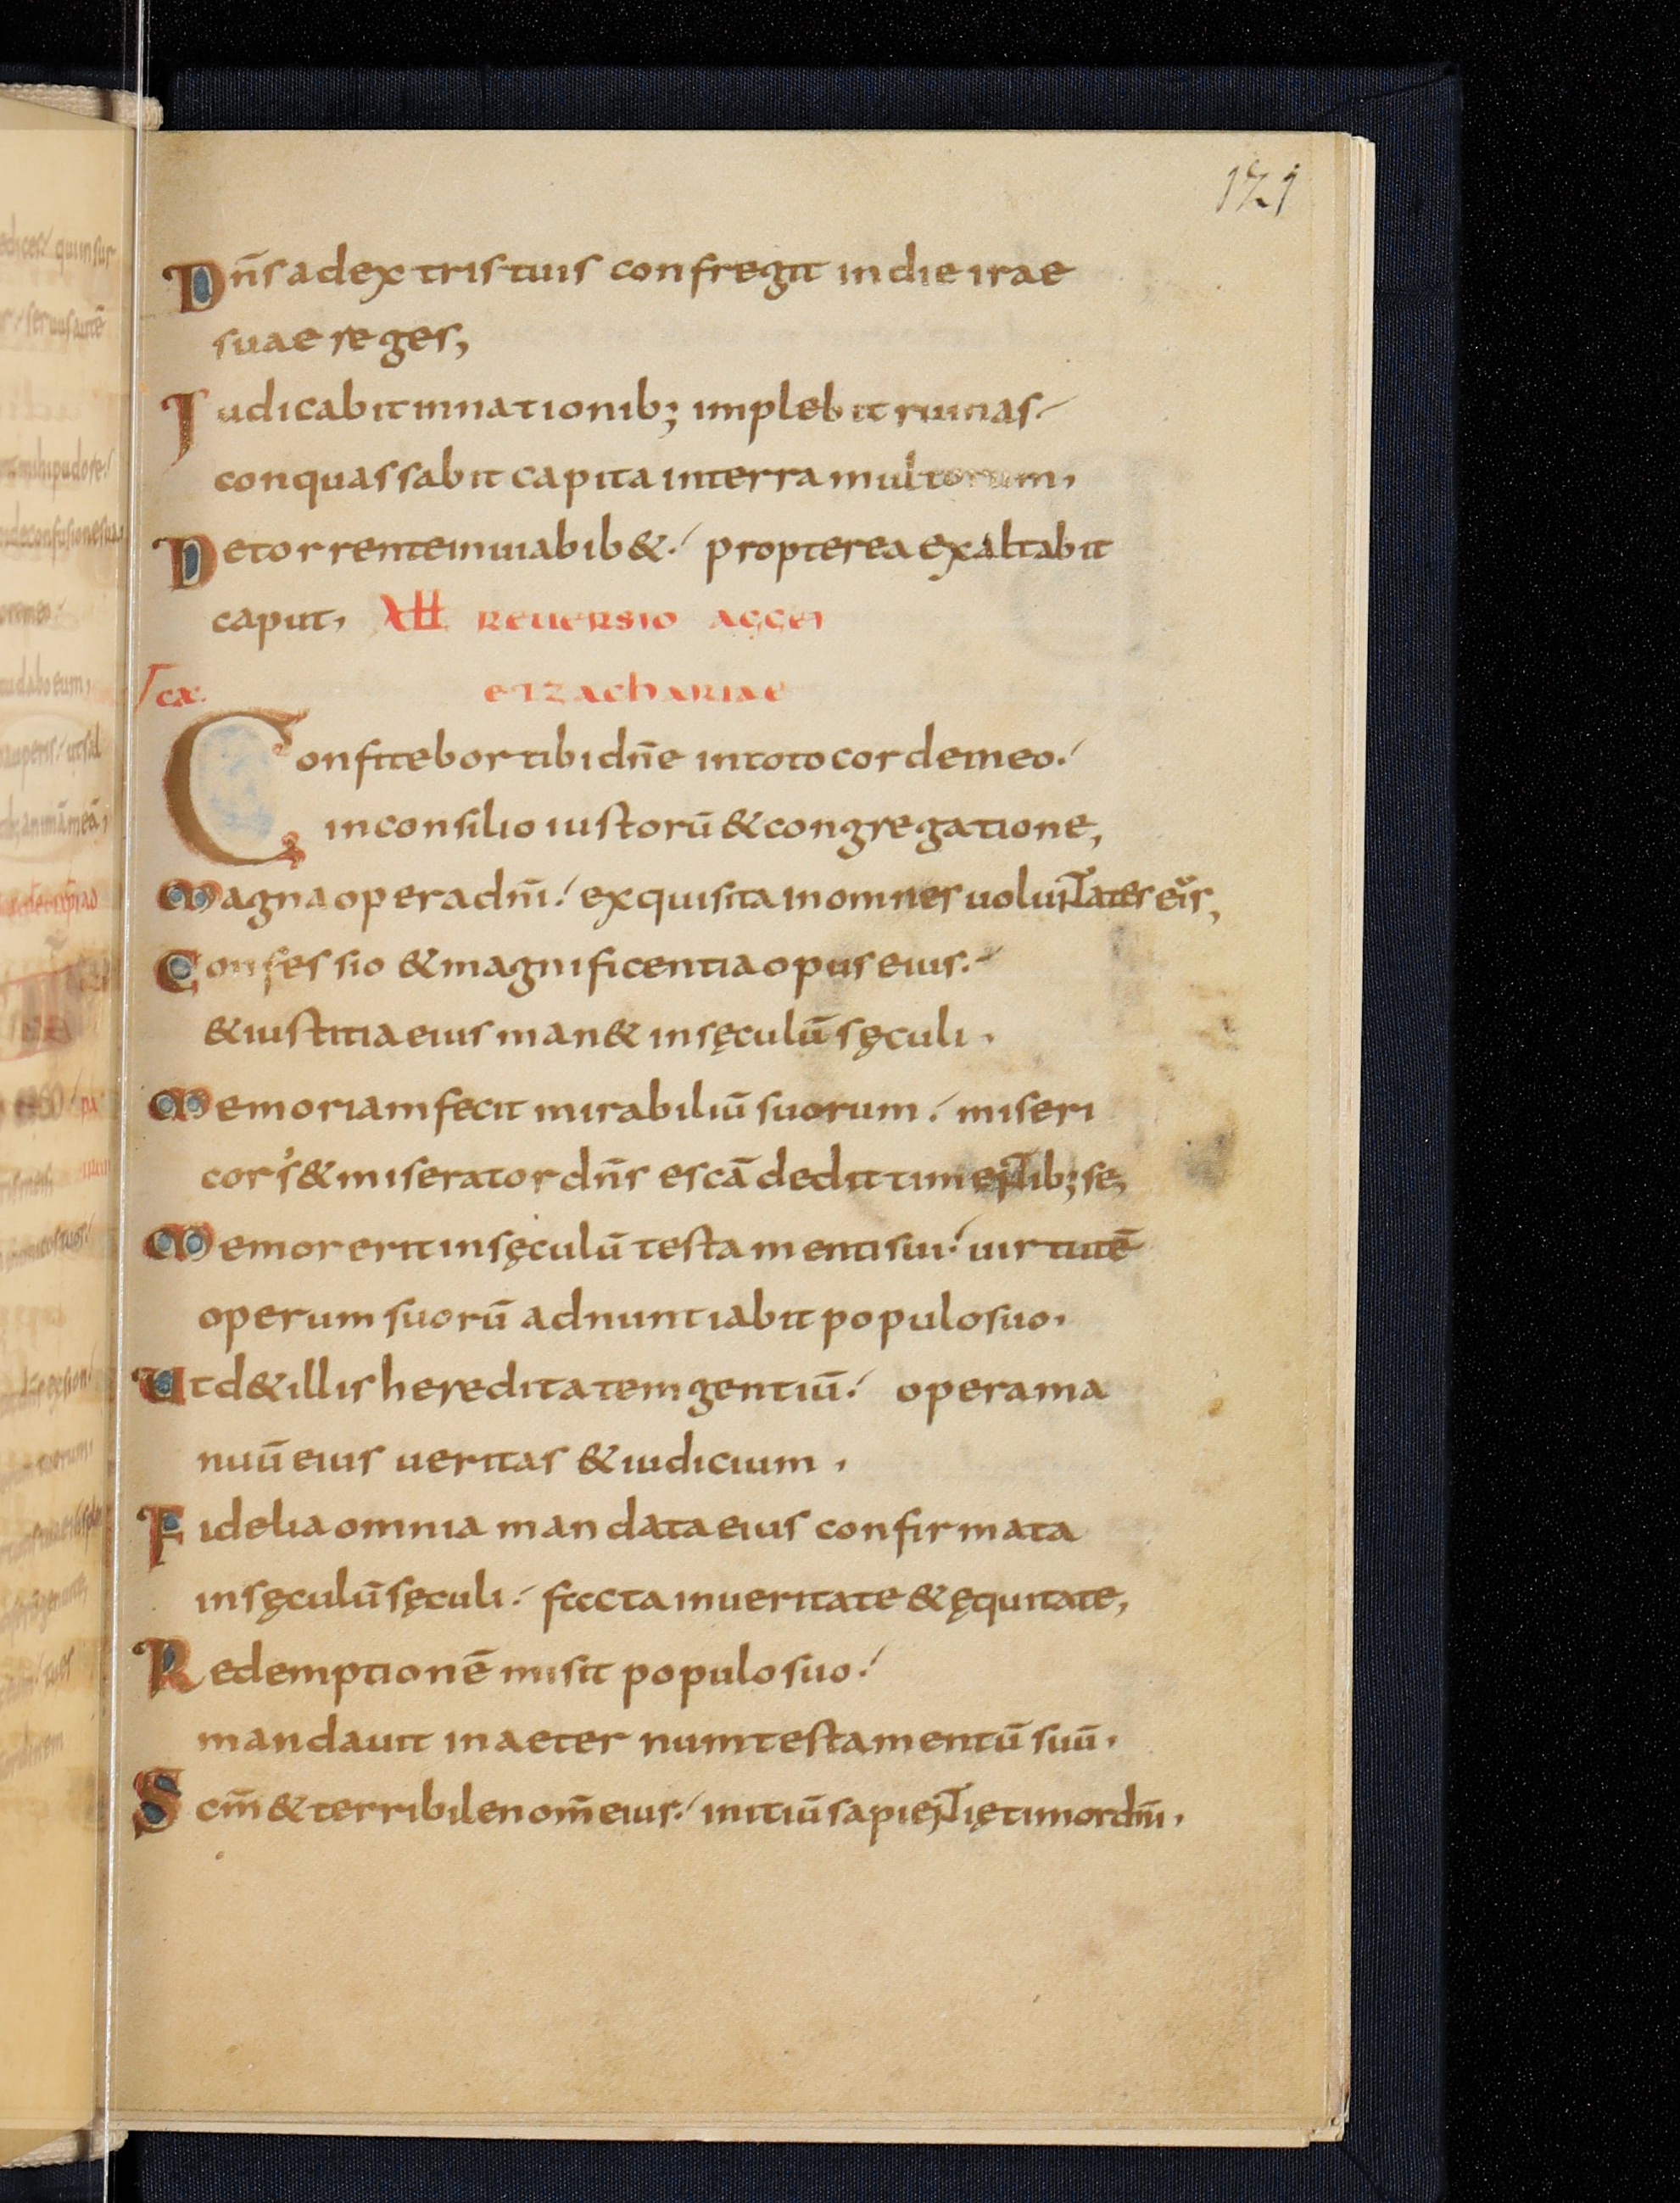 121
Dn̄s a dextris tuis confregit in die irae
suae reges,
Iudicabit in nationib; implebit ruinas./
conquassabit capita in terra multorum,
De torrente in uia bib&./ propterea exaltabit
caput, REUERSIO AGGEI
ET ZACHARIAE
Confitebor tibi dn̄e in toto corde meo./
in consilio iustorū & congregatione,
Magna opera dnī./ exquisita in omnes uoluntates eis,
Confessio & magnificentia opus eius./
& iustitia eius man& in sęculū sęculi,
Memoriam fecit mirabiliū suorum./ miseri
cors & miserator dn̄s escā dedit timentib; se,
Memor erit in sęculū testamenti sui./ uirtutē
operum suorū adnuntiabit populo suo,
Ut d& illis hereditatem gentiū./ opera ma
nuū eius ueritas & iudicium,
Fidelia omnia mandata eius confirmata
in sęculū sęculi./ facta in ueritate & ęquitate,
Redemptionē misit populo suo./
mandauit in aeternum testamentū suū,
Scm̄ & terribile nom̄ eius./ initiū sapientię timor dnī,